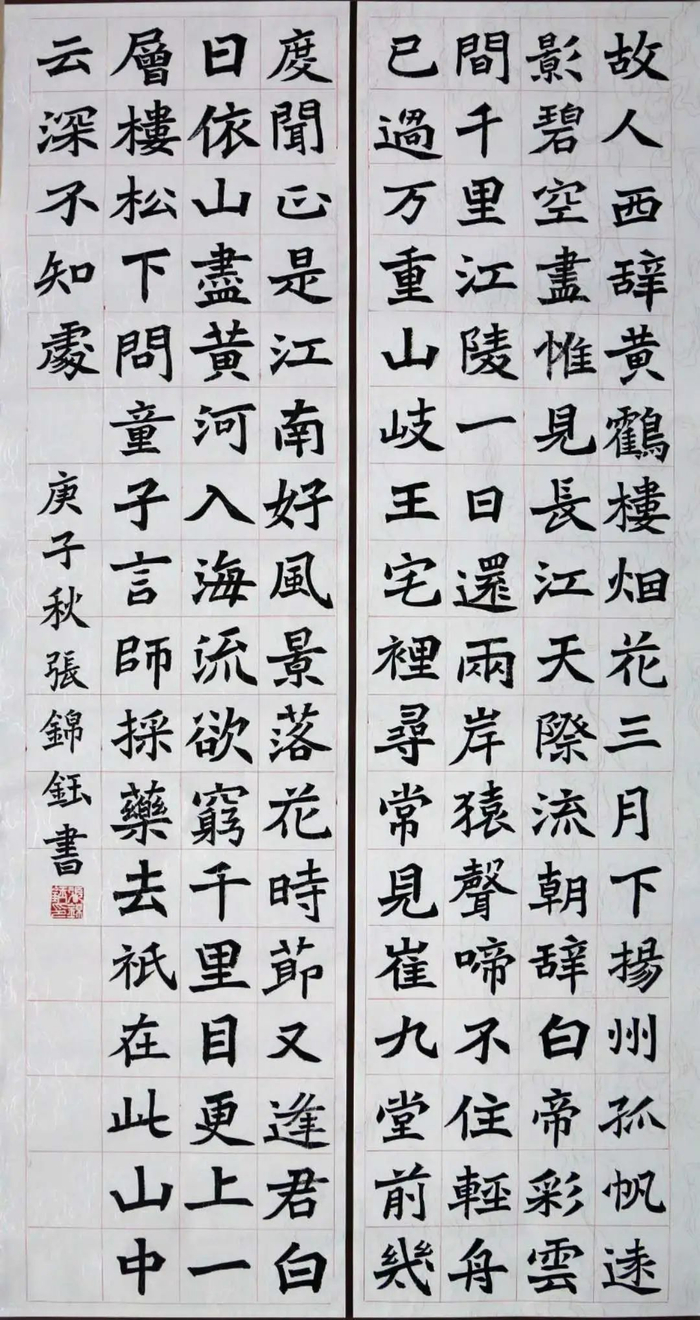 故人西辞黄鶴樓烟花三月下揚州孤帆遠
影碧空盡惟見長江天際流朝辞白帝彩雲
間千里江陵一日還兩岸猿聲啼不住輕舟
已過万重山岐王宅裡尋常見崔九堂前幾
度聞正是江南好風景落花時節又逢君白
日依山盡黄河入海流欲窮千里目更上一
層樓松下問童子言師採藥去祇在此山中
云深不知處
庚子秋張錦鈺書